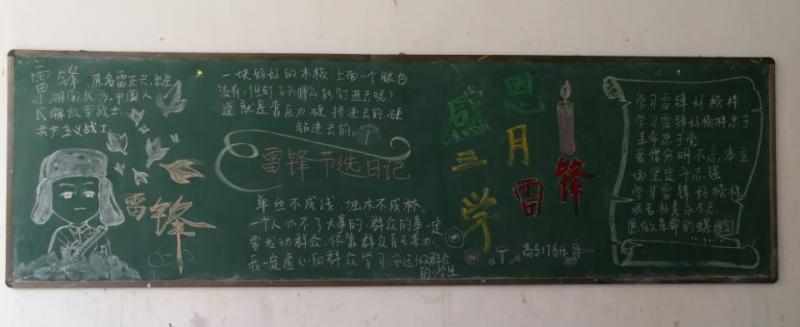 雷锋 原名雷正兴,出生
于湖南长沙,中国人
民解放军战士,
共产主义战士
雷锋
一块好好的木板,上面一个眼也
没有,但钉子为什么能钉进去呢?
这就是靠压力硬挤进去的,硬
钻进去的。
雷锋节选日记
单丝不成线,独木不成林。
一个人办不了大事的,群众的事一定
要发动群众,依靠群众自己来办,
我一定虚心向群众学习,永远做群众
的小学生
感恩
三月
学雷锋
学习雷锋好榜样
学习雷锋好榜样忠于
革命忠于党
爱憎分明不忘本立
场坚定斗志强
学习雷锋好榜样
艰苦朴素永不忘
愿做革命的螺丝钉